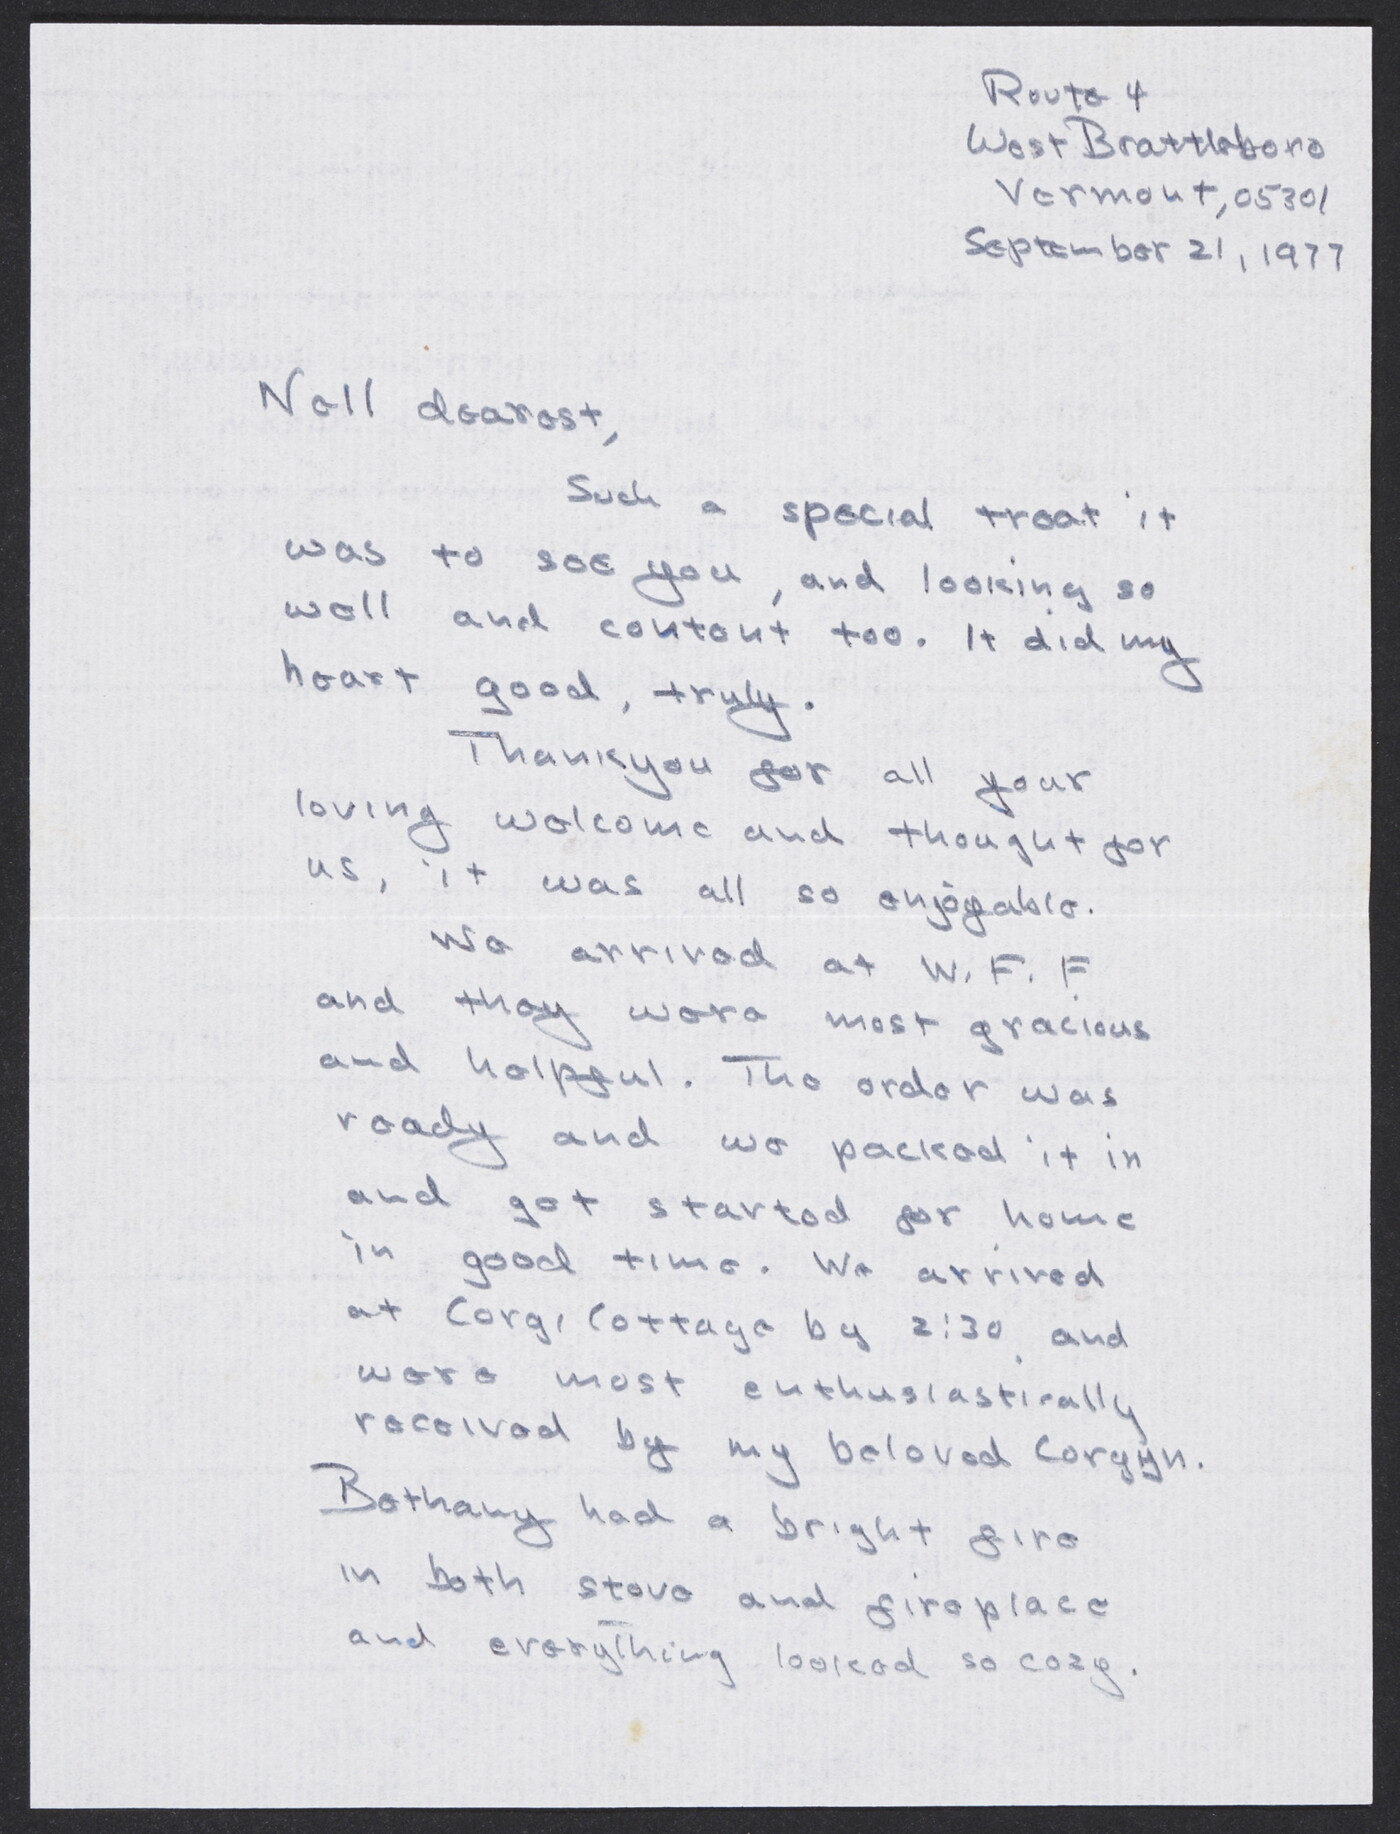 Route 4
West Brattleboro
Vermont, 05301
September 21, 1977
Nell dearest,
Such a special treat it
was to see you, and looking so
well and content too. It did my
heart good, truly.
Thankyou for all your
loving welcome and thought for
us, it was all so enjoyable.
We arrived at W. F. F.
and they were most gracious
and helpful. The order was
ready and we packed it in
and got started for home
in good time. We arrived
at Corgi Cottage by 2:30 and
were most enthusiastically
received by my beloved Corgyn.
Bethany had a bright fire
in both stove and fireplace
and everything looked so cozy.